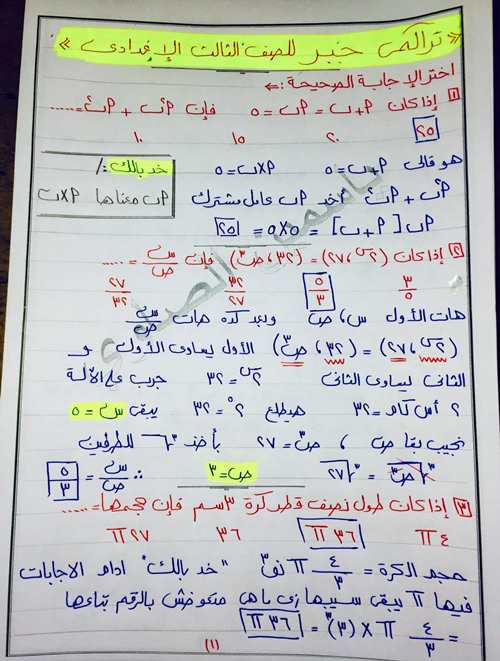 « تراكمى جبر للصف الثالث الإعدادى »
اختر الإجابة الصحيحة :-
[١] إذا كان ٢ + ب = ٢ب = ٥ فإن ٢²ب + ٢ب² = .......
٢٥ ٢٠ ١٥ ١٠
هو قالى ٢ + ب = ٥ ٢×ب = ٥ خد بالك :/
٢²ب + ٢ب² نخد ٢ب عامل مشترك ٢ب معناها ٢×ب
٢ب [٢ + ب] = ٥×٥ = ٢٥
[٢] إذا كان (٢^س ، ٢٧) = (٣٢ ، ص³) فإن س/ص = .......
٣/٥ ٥/٣ ٣٢/٢٧ ٢٧/٣٢
هات الأول س ، ص وبعد كده هات س/ص
(٢^س ، ٢٧) = (٣٢ ، ص³) الأول يساوى الأول و
الثانى يساوى الثانى ٢^س = ٣٢ جرب على الآلة
٢ أس كام = ٣٢ هيطلع ٢^٥ = ٣٢ يبقى س = ٥
نجيب بقا ص ، ص³ = ٢٧ بأخذ ∛ للطرفين
∛ص³ = ∛٢٧ ص = ٣ ∴ س/ص = ٥/٣
[٣] إذا كان طول نصف قطر كرة ٣سم فإن حجمها = .....
٤ π ٣٦ π ٣٦ ٢٧ π
حجم الكرة = ٤/٣ π نق³ "خد بالك" ادام الاجابات
فيها π يبقى سيبها زى ماهى متعوضش بالرقم بتاعها
= ٤/٣ π × (٣)³ = ٣٦ π
(١)